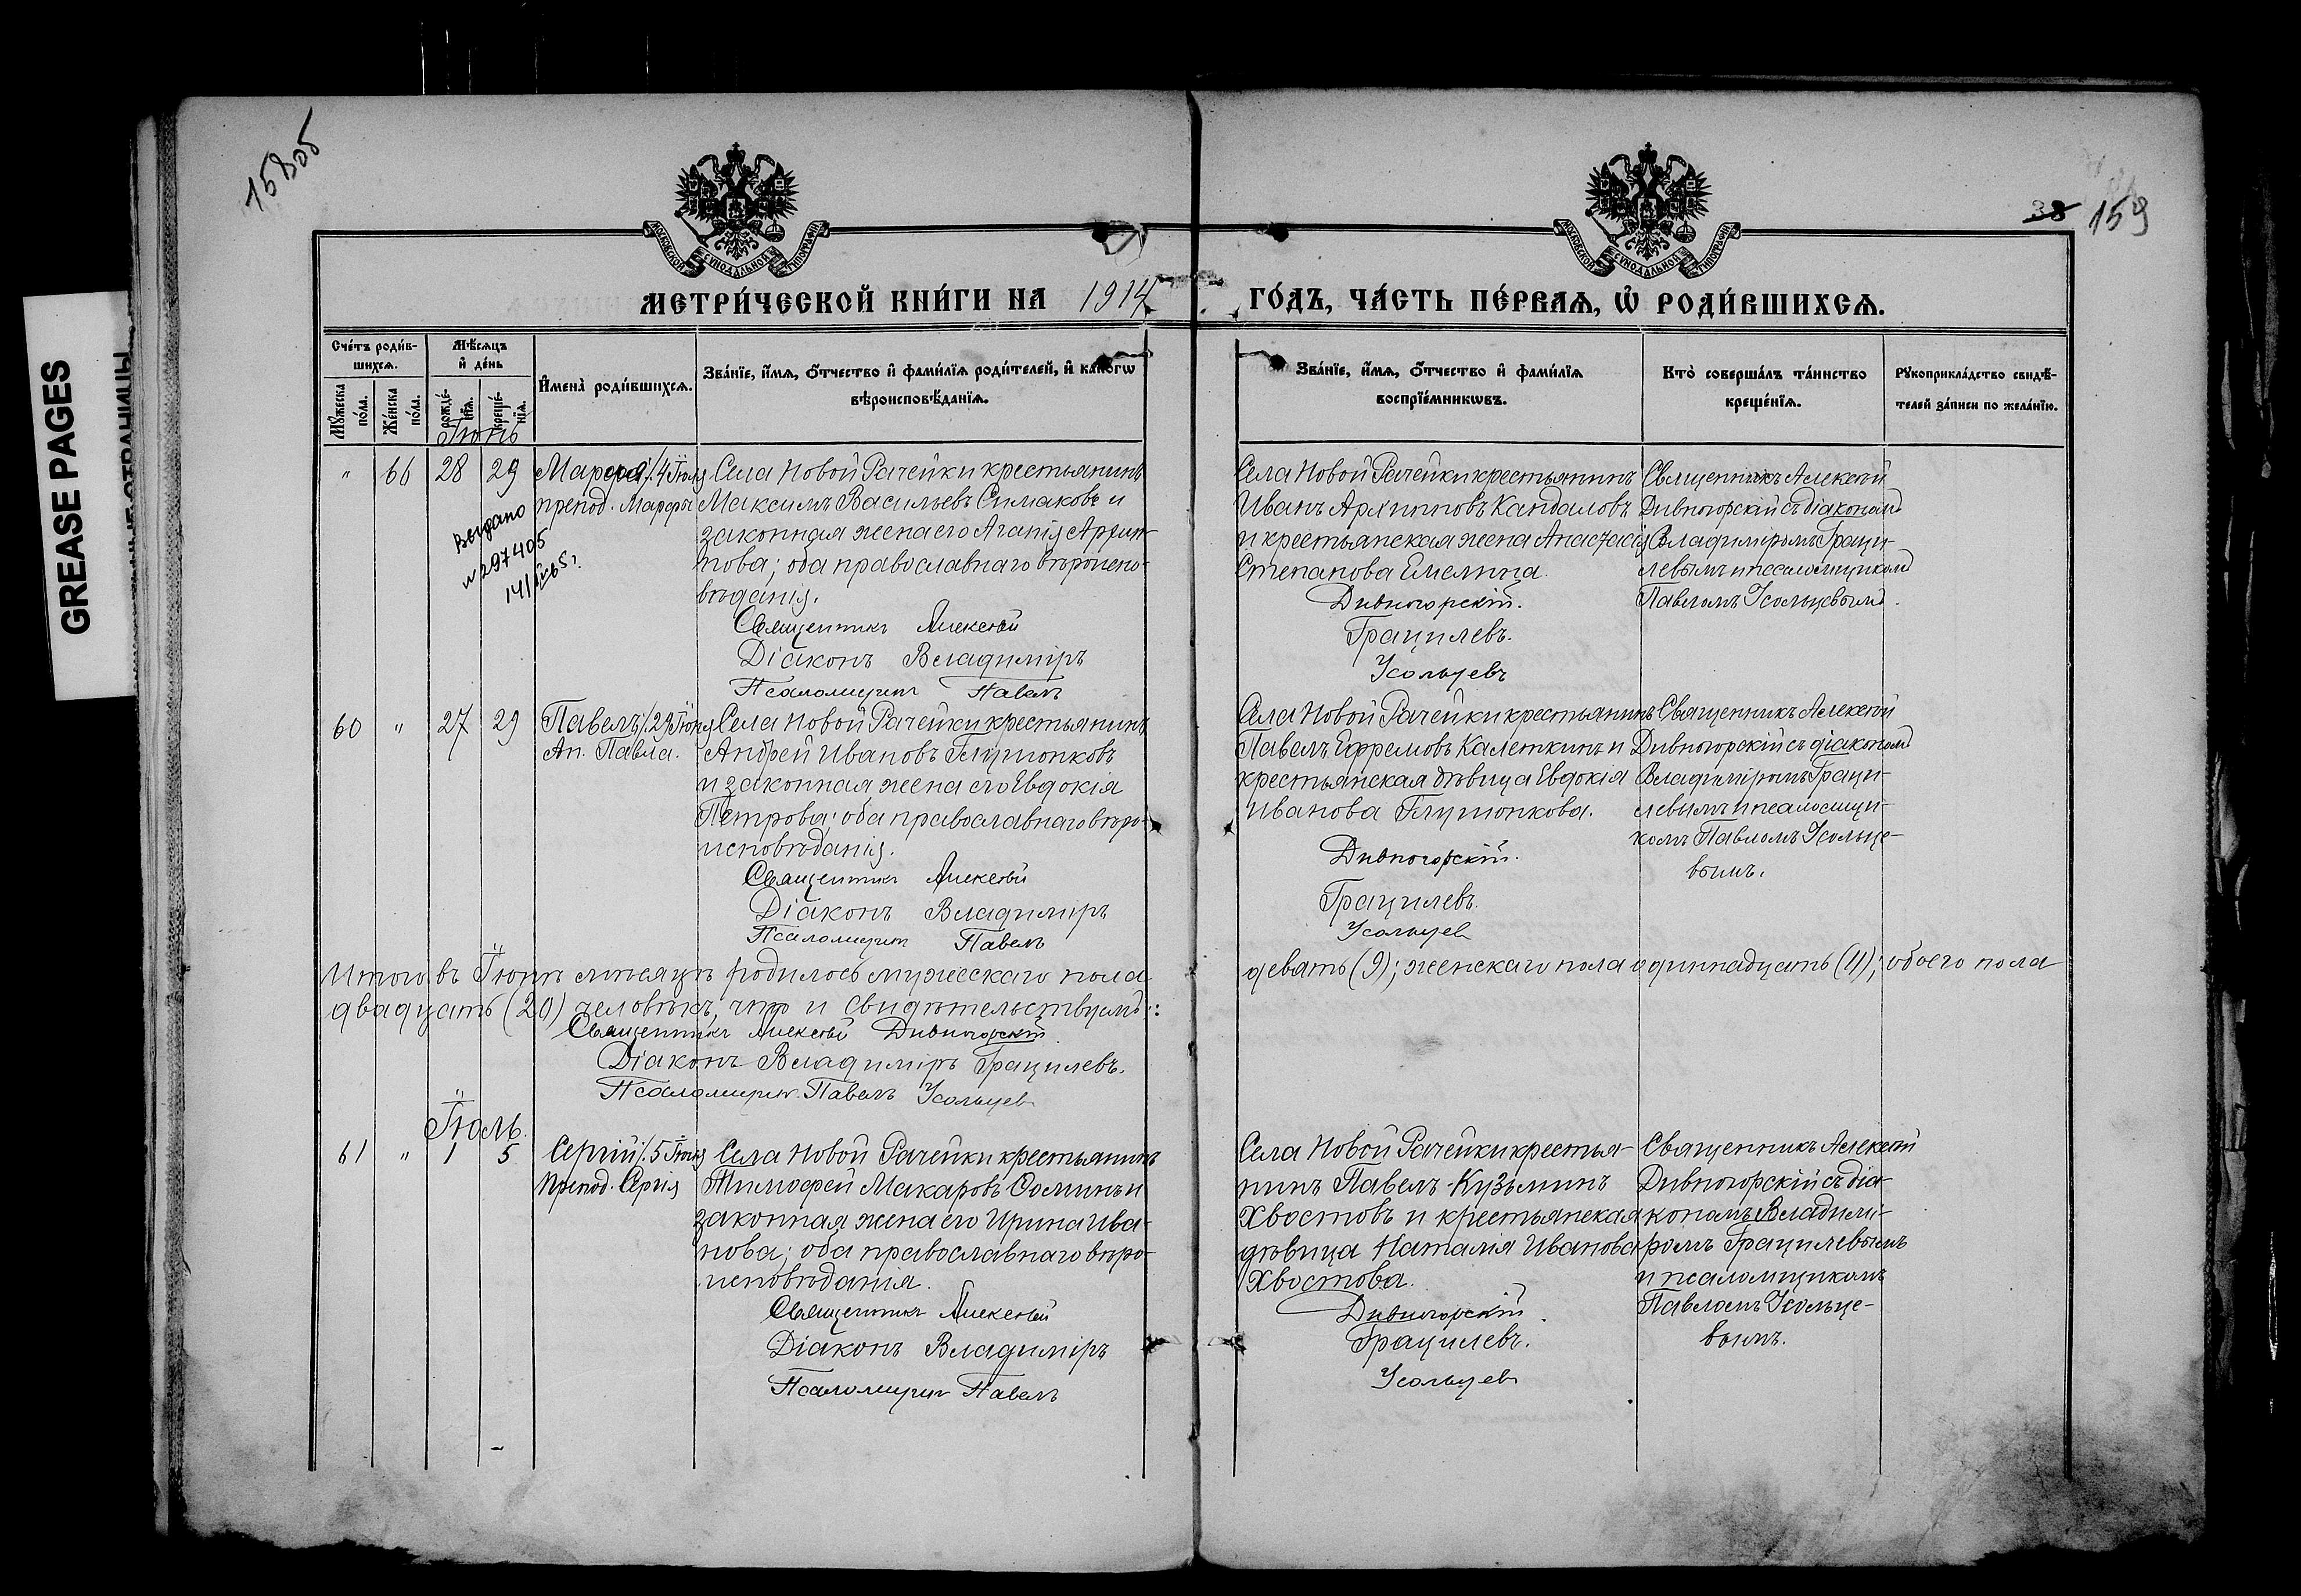 GREASE PAGES
158об
МОСКОВСКОЙ СѴНОДАЛЬНОЙ ТИПОГРАФІИ
МОСКОВСКОЙ СѴНОДАЛЬНОЙ ТИПОГРАФІИ
38 159
МЕТРИ́ЧЕСКОЙ КНИ́ГИ НА 1914 ГО́ДЪ, ЧА́СТЬ ПЕ́РВАѦ, Ѡ҆ РОДИ́ВШИХСѦ.
Сче́тъ роди́в-
шихсѧ.
Мꙋ́жеска по́ла.
Же́нска по́ла.
Мѣ́сѧцъ
и҆ де́нь
рожде́-
нїѧ.
креще́-
нїѧ.
И҆мена̀ роди́вшихсѧ.
Зва́нїе, и҆́мѧ, ѻ҆́тчество и҆ фами́лїѧ роди́телей, и҆ како́гѡ
вѣроисповѣ́данїѧ.
Зва́нїе, и҆́мѧ, ѻ҆́тчество и҆ фами́лїѧ
воспрїе́мникѡвъ.
Кто̀ соверша́лъ та́инство
креще́нїѧ.
Рꙋкоприкла́дство свидѣ́-
телей за́писи по жела́нїю.
Іюнь
" 66 28 29
Марѳа /. 4 Іюля
препод. Марѳы
Выдано
№ 297405
Села Новой Рачейки крестьянинъ
Максимъ Васильевъ Симаковъ и
законная жена его Агапія Архип-
пова; оба православнаго вѣроиспо-
вѣданія.
Священникъ Алексѣй
Діаконъ Владиміръ
Псаломщикъ Павелъ
Села Новой Рачейки крестьянинъ
Иванъ Архипповъ Кандаловъ
и крестьянская жена Анастасія
Степанова Емелина.
Дивногорскій.
Грацилевъ.
Усольцевъ
Священникъ Алексѣй
Дивногорскій съ діакономъ
Владиміромъ Граци-
левымъ и псаломщикомъ
Павломъ Усольцевымъ.
60 " 27 29
Павелъ /. 29 Іюня
Ап. Павла.
Села Новой Рачейки крестьянинъ
Андрей Ивановъ Глушонковъ
и законная жена его Евдокія
Петрова; оба православнаго вѣро-
исповѣданія.
Священникъ Алексѣй
Діаконъ Владиміръ
Псаломщикъ Павелъ
Села Новой Рачейки крестьянинъ
Павелъ Ефремовъ Калеткинъ и
крестьянская дѣвица Евдокія
Иванова Глушонкова.
Дивногорскій.
Грацилевъ.
Усольцевъ
Священникъ Алексѣй
Дивногорскій съ діакономъ
Владиміромъ Граци-
левымъ и псаломщи-
комъ Павломъ Усольце-
вымъ.
Итого въ Іюнѣ мѣсяцѣ родилось мужескаго пола девять (9); женскаго пола одиннадцать (11); обоего пола
двадцать (20) человѣкъ, что и свидѣтельствуемъ:
Священникъ Алексѣй Дивногорскій.
Діаконъ Владиміръ Грацилевъ.
Псаломщикъ Павелъ Усольцевъ
Іюль.
61 " 1 5
Сергій /. 5 Іюля
Препод. Сергія
Села Новой Рачейки крестьянинъ
Тимоѳей Макаровъ Соминъ и
законная жена его Ирина Ива-
нова; оба православнаго вѣро-
исповѣданія.
Священникъ Алексѣй
Діаконъ Владиміръ
Псаломщикъ Павелъ
Села Новой Рачейки крестья-
нинъ Павелъ Кузьминъ
Хвостовъ и крестьянская
дѣвица Наталія Иванова
Хвостова.
Дивногорскій.
Грацилевъ.
Усольцевъ
Священникъ Алексѣй
Дивногорскій съ діа-
кономъ Владими-
ромъ Грацилевымъ
и псаломщикомъ
Павломъ Усольце-
вымъ.